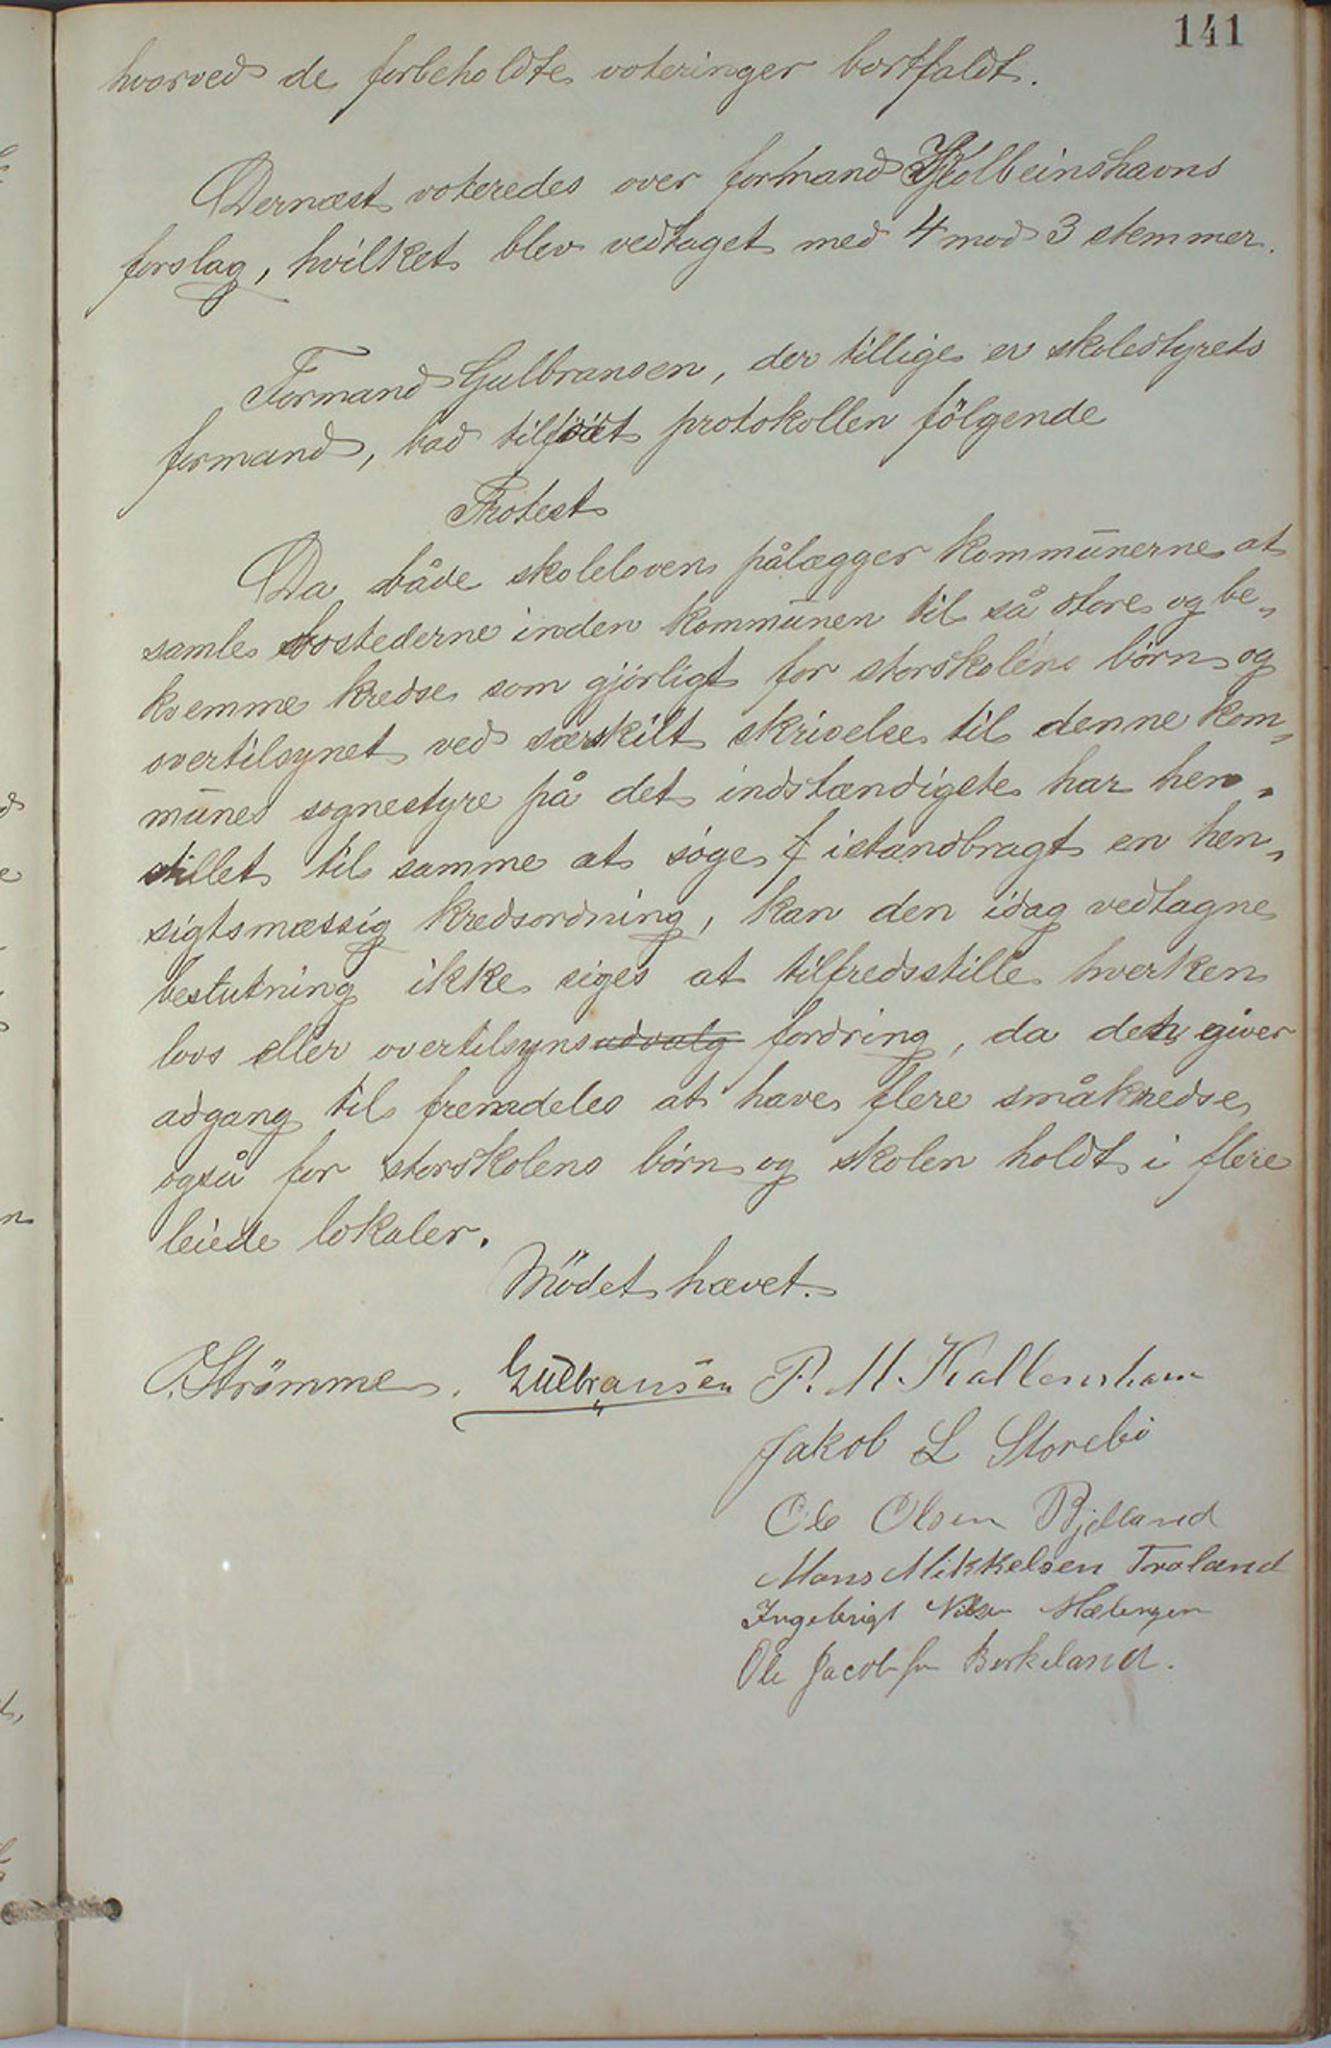 141
hvorved de forbeholdte voteringer bortfaldt.
Dernæst voteredes over formand Kolbeinshavns
forslag, hvilket blev vedtaget med 4 mod 3 stemmer.
Formand Gulbransen, der tillige er skolestyrets
formand, bad tilföiet protokollen fölgende
Protest
Da både skoleloven pålægger kommunerne at
samle bostederne inden kommunen til så store og be-
kvemme kredse som gjörligt for storskolens börn og
overtilsynet ved særskilt skrivelse til denne kom-
munes sognestyre på det indstændigste har hen-
stillet til samme at söge f istandbragt en hen-
sigtsmæssig kredsordning, kan den idag vedtagne
beslutning ikke siges at tilfredsstille hverken
lovs eller overtilsynsudvalg fordring, da den giver
adgang til fremdeles at have flere småkredse
også for storskolens börn og skolen holdt i flere
leiede lokaler.
Mödet hævet.
O. Strömme. Gulbransen P. M. Kolbenshavn
Jakob L Storebö
Ole Olsen Bjelland
Mons Mikkelsen Troland
Ingebrigt Nilsen
Ole Jacobsen Birkeland.